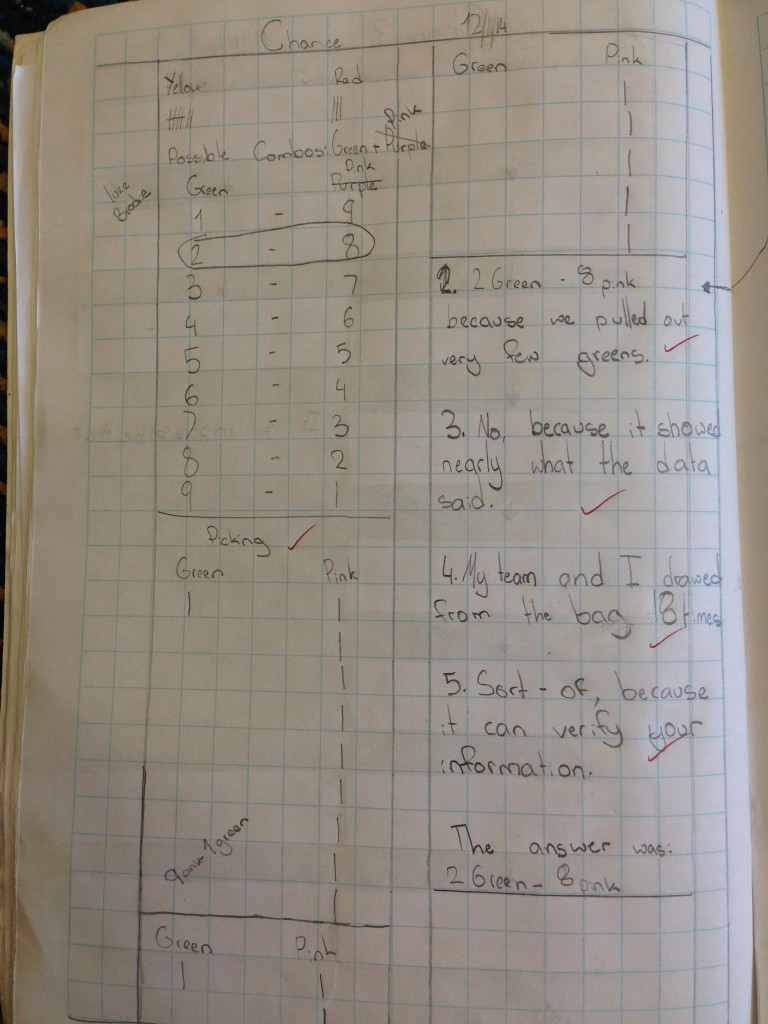 Chance 12/11/14
Yellow Red
|||| || |||
Pink
Possible Combos: Green + Purple
Pink
Green Purple
1 - 9
2 - 8
3 - 7
4 - 6
5 - 5
6 - 4
7 - 3
8 - 2
9 - 1
Picking
Green Pink
| |
|
|
|
|
|
|
|
|
9 pink 1 green
Green Pink
| |
|
Green Pink
|
|
|
|
|
2. 2 Green - 8 pink
because we pulled out
very few greens.
3. No, because it showed
nearly what the data
said.
4. My team and I drawed
from the bag 18 times
5. Sort-of, because
it can verify your
information.
The answer was:
2 Green - 8 pink